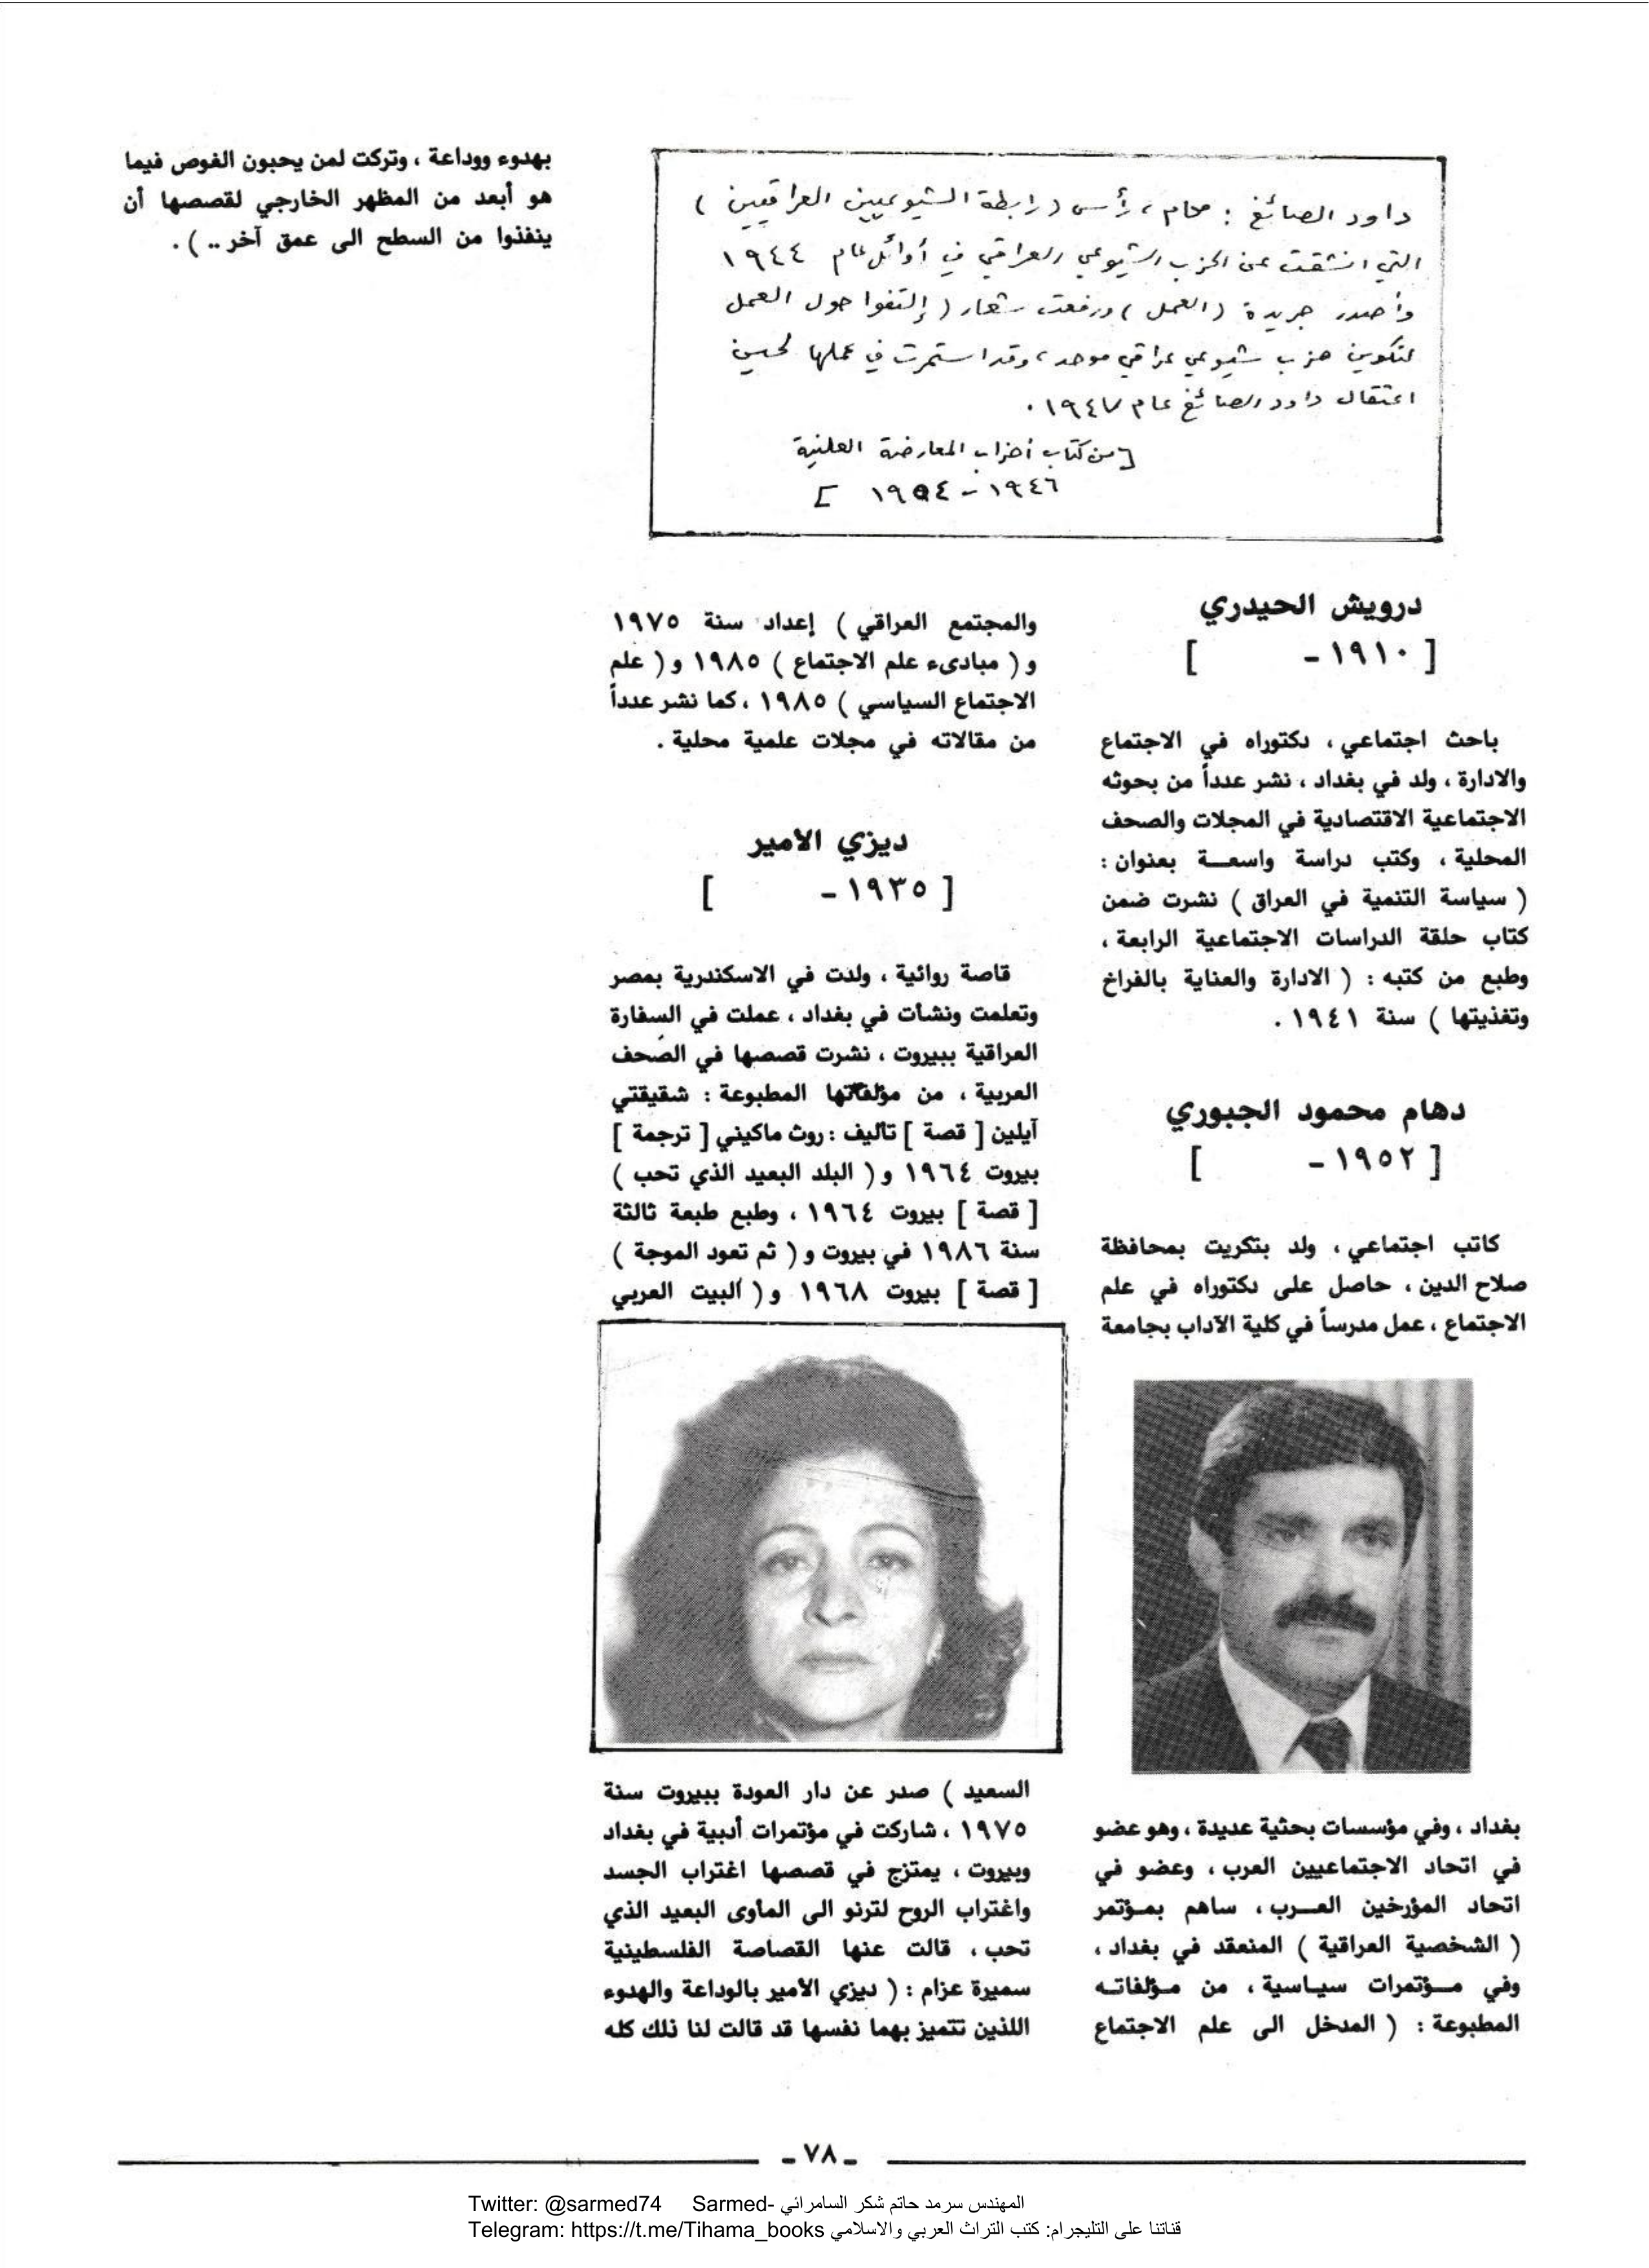 داود الصائغ : محام ، رأس ( رابطة الشيوعيين العراقيين )
التي انشقت عن الحزب الشيوعي العراقي في أوائل عام ١٩٤٤
وأصدر جريدة ( العمل ) ورفعت شعار ( إلتفوا حول العمل
لتكوين حزب شيوعي عراقي موحد ، وقد استمرت في عملها لحين
اعتقال داود الصائغ عام ١٩٤٧ .
[ من كتاب أحزاب المعارضة العلنية
١٩٤٦ - ١٩٥٤ ]
درويش الحيدري
[ ١٩١٠ - ]
باحث اجتماعي ، دكتوراه في الاجتماع
والادارة ، ولد في بغداد ، نشر عدداً من بحوثه
الاجتماعية الاقتصادية في المجلات والصحف
المحلية ، وكتب دراسة واسعة بعنوان :
( سياسة التنمية في العراق ) نشرت ضمن
كتاب حلقة الدراسات الاجتماعية الرابعة ،
وطبع من كتبه : ( الادارة والعناية بالفراخ
وتغذيتها ) سنة ١٩٤١ .
دهام محمود الجبوري
[ ١٩٥٢ - ]
كاتب اجتماعي ، ولد بتكريت بمحافظة
صلاح الدين ، حاصل على دكتوراه في علم
الاجتماع ، عمل مدرساً في كلية الآداب بجامعة
بغداد ، وفي مؤسسات بحثية عديدة ، وهو عضو
في اتحاد الاجتماعيين العرب ، وعضو في
اتحاد المؤرخين العرب ، ساهم بمؤتمر
( الشخصية العراقية ) المنعقد في بغداد ،
وفي مؤتمرات سياسية ، من مؤلفاته
المطبوعة : ( المدخل الى علم الاجتماع
والمجتمع العراقي ) إعداد سنة ١٩٧٥
و ( مبادىء علم الاجتماع ) ١٩٨٥ و ( علم
الاجتماع السياسي ) ١٩٨٥ ، كما نشر عدداً
من مقالاته في مجلات علمية محلية .
ديزي الأمير
[ ١٩٣٥ - ]
قاصة روائية ، ولدت في الاسكندرية بمصر
وتعلمت ونشأت في بغداد ، عملت في السفارة
العراقية ببيروت ، نشرت قصصها في الصحف
العربية ، من مؤلفاتها المطبوعة : شقيقتي
آيلين [ قصة ] تأليف : روث ماكيني [ ترجمة ]
بيروت ١٩٦٤ و ( البلد البعيد الذي تحب )
[ قصة ] بيروت ١٩٦٤ ، وطبع طبعة ثالثة
سنة ١٩٨٦ في بيروت و ( ثم تعود الموجة )
[ قصة ] بيروت ١٩٦٨ و ( البيت العربي
السعيد ) صدر عن دار العودة ببيروت سنة
١٩٧٥ ، شاركت في مؤتمرات أدبية في بغداد
وبيروت ، يمتزج في قصصها اغتراب الجسد
واغتراب الروح لترنو الى المأوى البعيد الذي
تحب ، قالت عنها القصاصة الفلسطينية
سميرة عزام : ( ديزي الأمير بالوداعة والهدوء
اللذين تتميز بهما نفسها قد قالت لنا ذلك كله
بهدوء ووداعة ، وتركت لمن يحبون الغوص فيما
هو أبعد من المظهر الخارجي لقصصها أن
ينفذوا من السطح الى عمق آخر .. ) .
- ٧٨ -
Twitter: @sarmed74 Sarmed- المهندس سرمد حاتم شكر السامرائي
Telegram: https://t.me/Tihama_books قناتنا على التليجرام: كتب التراث العربي والاسلامي